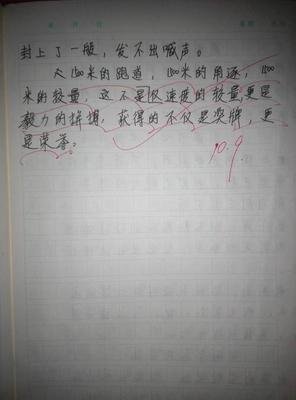 封上了一般，发不出喊声。
1500米的跑道，1500米的角逐，1500
米的较量，这不是仅速度的较量，更是
毅力的拼搏，获得的不仅是奖牌，更
是荣誉。
10.9.